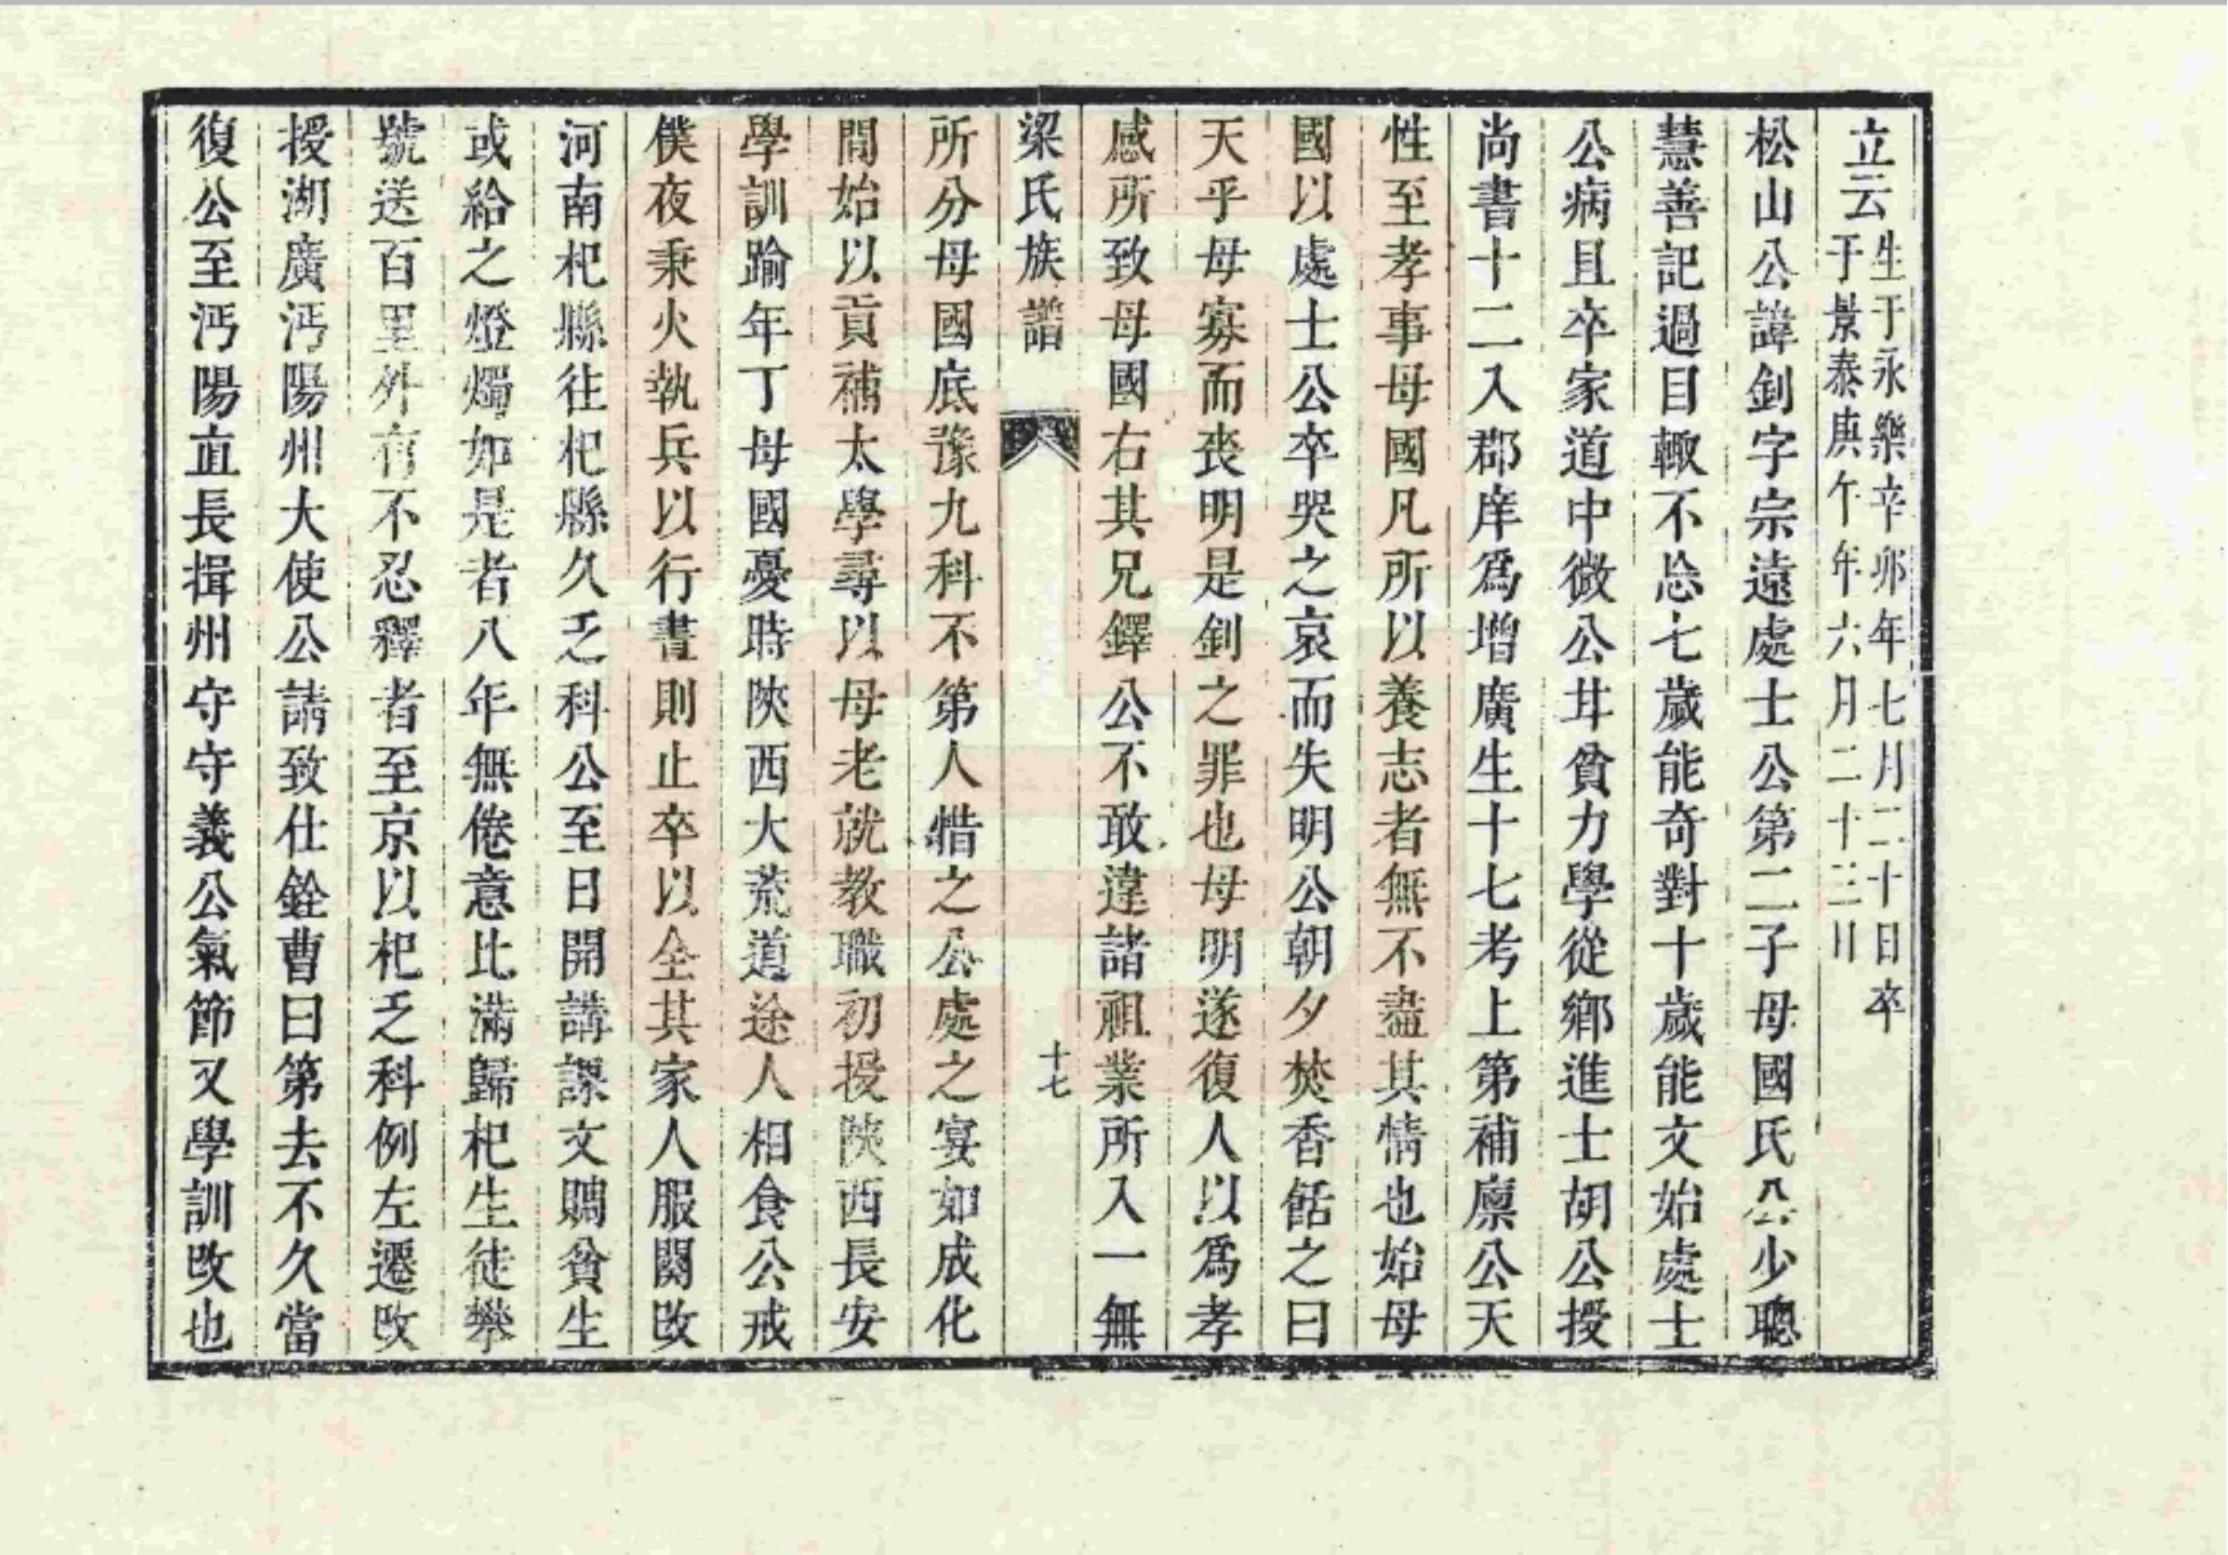 立云生于永樂辛卯年七月二十日卒
于景泰庚午年六月二十三日
松山公諱釗字宗遠處士公第二子母國氏公少聰
慧善記過目輙不忘七歲能奇對十歲能文始處士
公病且卒家道中微公甘貧力學從鄉進士胡公授
尚書十二入郡庠爲增廣生十七考上第補廪公天
性至孝事母國凡所以養志者無不盡其情也始母
國以處士公卒哭之哀而失明公朝夕焚香餂之曰
天乎母寡而丧明是釗之罪也母明遂復人以爲孝
感所致母國右其兄鐸公不敢違諸祖業所入一無
梁氏族譜
十七
所分母國底豫九科不第人惜之公處之宴如成化
間始以貢補太學尋以母老就教職初授陜西長安
學訓踰年丁母國憂時陜西大荒道途人相食公戒
僕夜秉火執兵以行晝則止卒以全其家人服闋改
河南杞縣往杞縣久乏科公至日開講課文賙貧生
或給之燈燭如是者八年無倦意比滿歸杞生徒攀
號送百里外有不忍釋者至京以杞乏科例左遷改
授湖廣沔陽州大使公請致仕銓曹曰第去不久當
復公至沔陽直長揖州守守義公氣節又學訓改也